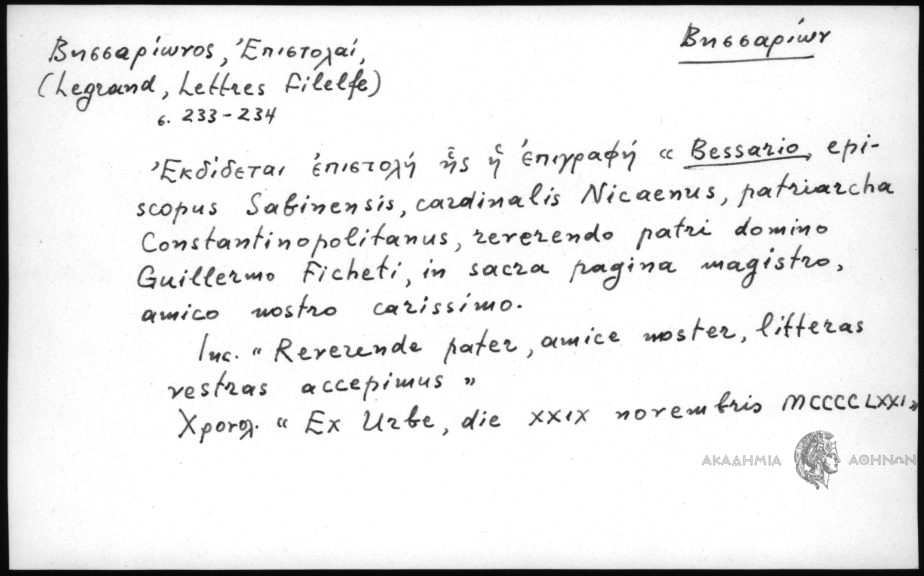 Βησσαρίων
Βησσαρίωνος, Ἐπιστολαί,
(Legrand, Lettres Filelfe)
σ. 233-234
Ἐκδίδεται ἐπιστολή ἧς ἡ ἐπιγραφή « Bessario, epi-
scopus Sabinensis, cardinalis Nicaenus, patriarcha
Constantinopolitanus, reverendo patri domino
Guillermo Ficheti, in sacra pagina magistro,
amico nostro carissimo.
Inc. « Reverende pater, amice noster, litteras
vestras accepimus »
Χρονολ. « Ex Urbe, die XXIX novembris MCCCCLXXI »
ΑΚΑΔΗΜΙΑ ΑΘΗΝΩΝ